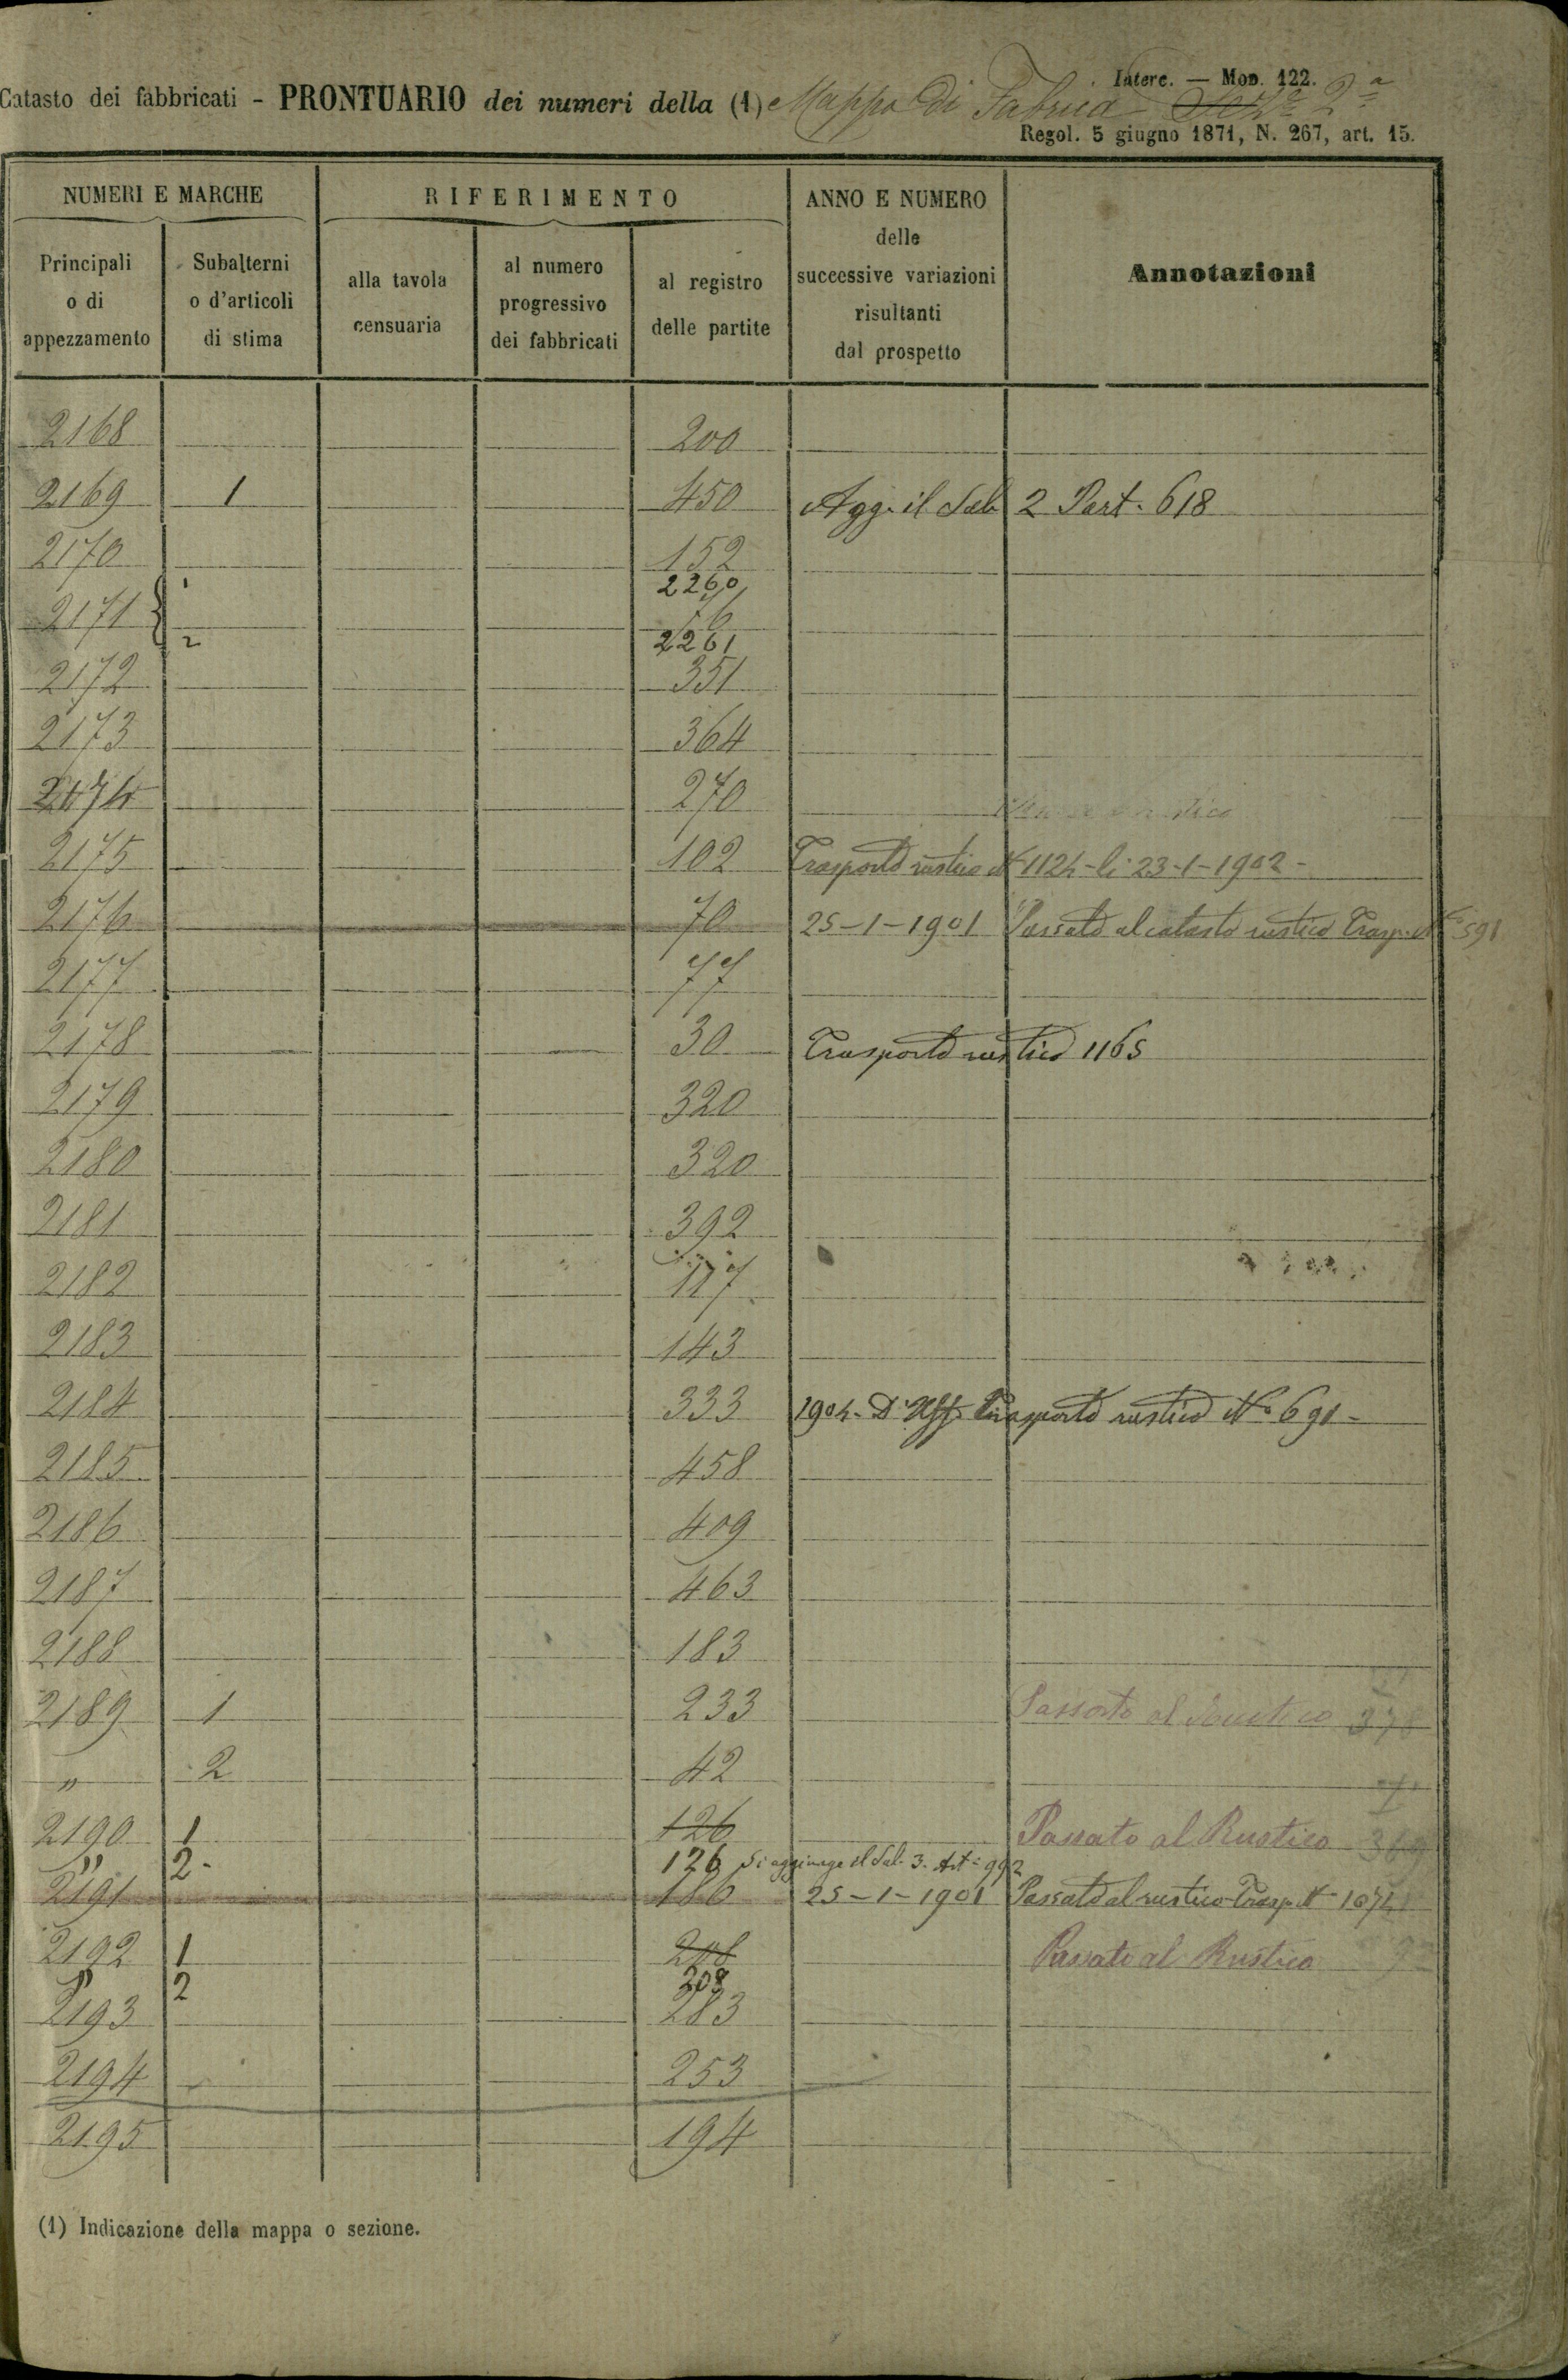 Interc. — Mod. 122.
Catasto dei fabbricati - PRONTUARIO dei numeri della (1) Mappa di Fabrica 2ª
Regol. 5 giugno 1871, N. 267, art. 15.
NUMERI E MARCHE
RIFERIMENTO
ANNO E NUMERO
delle
successive variazioni
risultanti
dal prospetto
Annotazioni
Principali
o di
appezzamento
Subalterni
o d'articoli
di stima
alla tavola
censuaria
al numero
progressivo
dei fabbricati
al registro
delle partite
2168 200
2169 1 450 Agg. il Sub 2 Part. 618
2170 152
1 2260
2171 76
2 2261
2172 351
2173 364
2174 270
2175 102 Trasporto rustico N 1124 - li 23-1-1902 -
2176 70 25-1-1901 Passato al catasto rustico Trasp. N° 591
2177 77
2178 30 Trasporto rustico 1165
2179 320
2180 320
2181 392
2182 117
2183 143
2184 333 1904 - D'Uff. Trasporto rustico N° 691 -
2185 458
2186 409
2187 463
2188 183
2189 1 233 Passato al Rustico 378
" 2 42
2190 1 126 Passato al Rustico
" 2 - 126 Si aggiunge il Sub. 3. Art= 992
2191 186 25-1-1901 Passato al rustico Trasp. N- 1074
2192 1 208 Passato al Rustico
" 2 208
2193 283
2194 253
2195 194
(1) Indicazione della mappa o sezione.